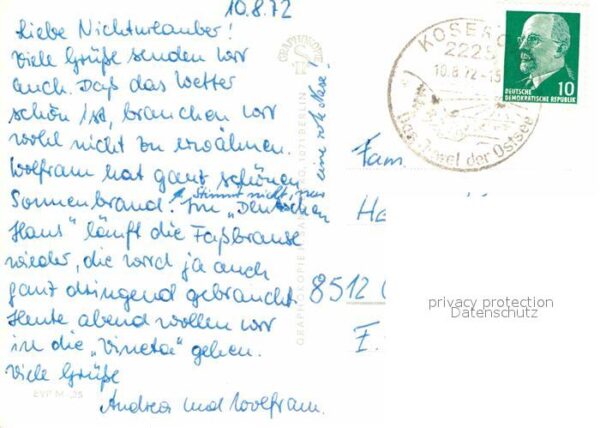 10.8.72
Liebe Nichturlauber!
Viele Grüße senden wir
auch. Daß das Wetter
schön ist, brauchen wir
wohl nicht zu erwähnen.
Wolfram hat ganz schönen
Sonnenbrand. Im "Deutschen
Haus" läuft die Faßbrause
wieder, die wird ja auch
ganz dringend gebraucht.
Heute abend wollen wir
in die "Vineta" gehen.
Viele Grüße
Andrea und Wolfram.
stimmt nicht, nur
eine rote Nase!
GRAPHOKOPIE 1071 BERLIN
KOSEROW
2225
10.8.72-15
Das Juwel der Ostsee
DEUTSCHE
DEMOKRATISCHE REPUBLIK
10
Fam.
Ha
8512
E.
privacy protection
Datenschutz